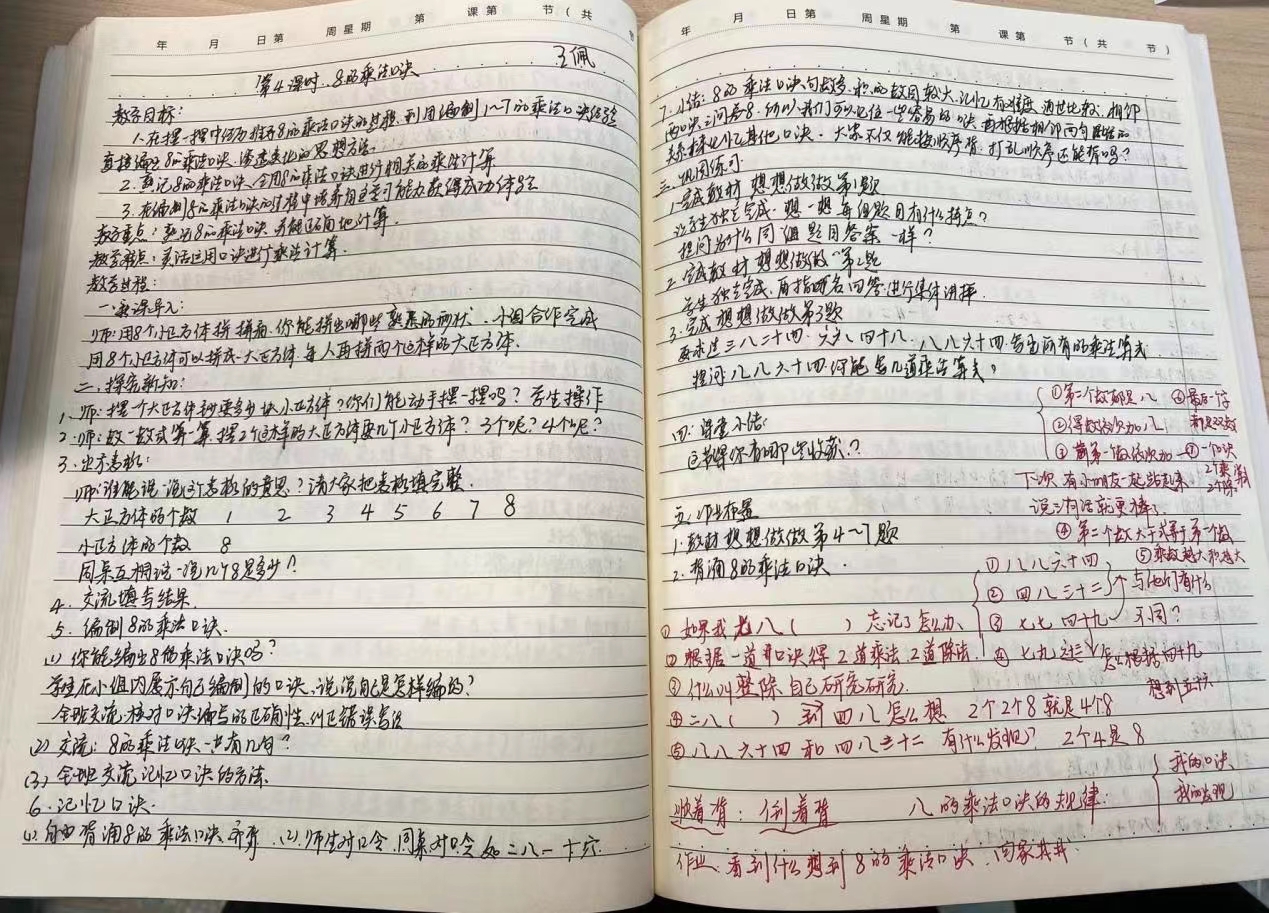 年 月 日第 周星期 第 课第 节(共
王佩
第4课时 8的乘法口诀
教学目标:
1.在摆一摆中经历推导8的乘法口诀的过程,利用编制1~7的乘法口诀经验
直接编出8的乘法口诀,渗透变化的思想方法.
2.熟记8的乘法口诀,会用8的乘法口诀进行相关的乘法计算
3.在编制8的乘法口诀的过程中培养自主学习能力获得成功体验
教学重点:熟记8的乘法口诀,并能正确地计算
教学难点:灵活运用口诀进行乘法计算.
教学过程:
一.新课导入:
师:用8个小正方体拼拼看,你能拼出哪些熟悉的形状.小组合作完成
用8个小正方体可以拼成一大正方体.每人再拼两个这样的大正方体.
二.探究新知:
1.师:摆一个大正方体至少要多少块小正方体?你们能动手摆一摆吗?学生操作
2.师:数一数或算一算,摆2个这样的大正方体要几个小正方体?3个呢?4个呢?
3.出示表格:
师:谁能说一说这个表格的意思?请大家把表格填完整.
大正方体的个数 1 2 3 4 5 6 7 8
小正方体的个数 8
同桌互相说一说几个8是多少?
4.交流填写结果.
5.编制8的乘法口诀.
(1)你能编出8的乘法口诀吗?
学生在小组内展示自己编制的口诀.说说自己是怎样编的?
全班交流,核对口诀编写的正确性,纠正错误写法
(2)交流:8的乘法口诀一共有几句?
(3)全班交流记忆口诀的方法.
6.记忆口诀.
(1)自由背诵8的乘法口诀.齐背 (2)师生对口令.同桌对口令 如二八一十六
年 月 日第 周星期 第 课第 节(共 节)
7.小结:8的乘法口诀句数多,积的数目较大,记忆有难度,通过比较,相邻
两口诀之间差8.所以我们可以记住一些容易的口诀,再根据相邻两句口诀的
关系来记忆其他口诀.大家不仅能按顺序背,打乱顺序还能背吗?
三.巩固练习
1.完成教材"想想做做"第1题
学生独立完成,想一想每组题目有什么特点?
提问为什么同一组题目答案一样?
2.完成教材"想想做做"第2题
学生独立完成,再指名回答,进行集体讲评.
3.完成"想想做做"第3题
要求选三八二十四.六八四十八.八八六十四.写出所有的乘法算式
提问八八六十四你能写几道乘法算式?
四.课堂小结:
这节课你有哪些收获?
①第二个数都是八 ⑥最后一个字都是双数
②得数依次加八
③前第一个数依次加一 ⑦一个口诀2个乘2个除算
下次有小朋友一起站起来
说三句话就更棒了.
④第二个数大于或等于第一个数
⑤乘数越大积越大
五.作业布置
1.教材想想做做第4~7题
2.背诵8的乘法口诀.
①八八六十四
②四八三十二 与他们有什么
③七七四十九 不同?
④七九 怎么根据四十九
想到五十六
①如果我老八( )忘记了怎么办.
②根据一道口诀得2道乘法,2道除法
③什么叫整除.自己研究研究.
④二八( )到四八怎么想 2个2个8就是4个8
⑤八八六十四和四八三十二有什么发现? 2个4是8
顺着背:倒着背 八的乘法口诀的规律:
我的口诀
我的发现
作业:看到什么想到8的乘法口诀.回家